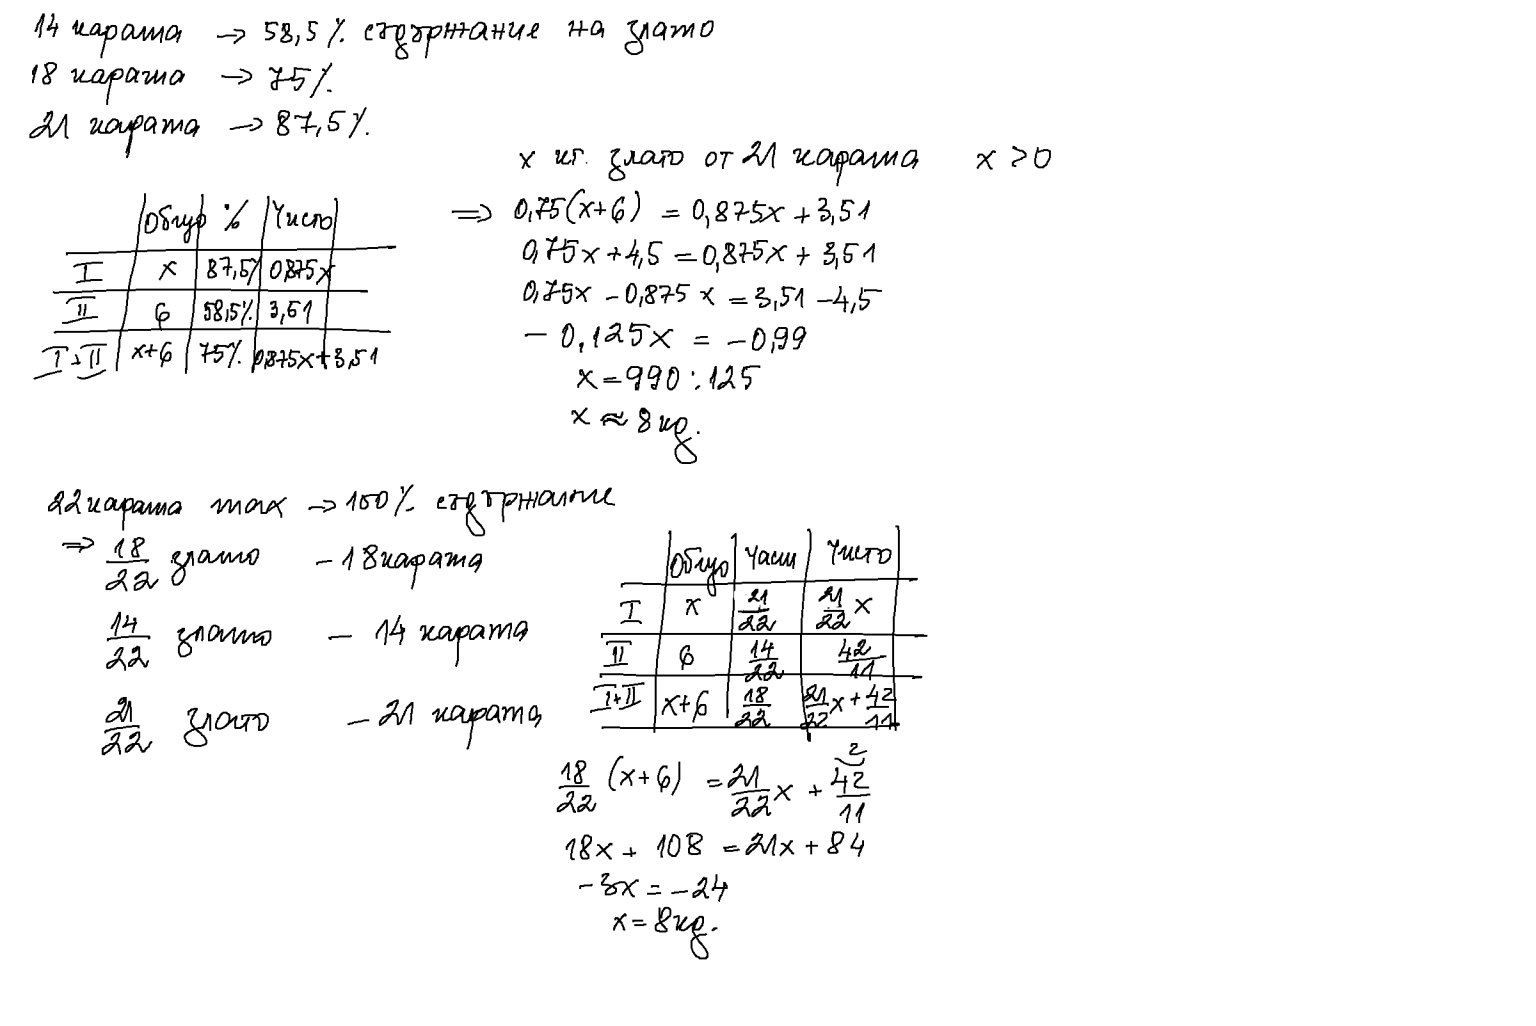 14 карата → 58,5% съдържание на злато
18 карата → 75%
21 карата → 87,5%
x кг. злато от 21 карата x > 0
Общо % Чисто
I x 87,5% 0,875x
II 6 58,5% 3,51
I+II x+6 75% 0,875x+3,51
⇒ 0,75(x+6) = 0,875x + 3,51
0,75x + 4,5 = 0,875x + 3,51
0,75x - 0,875x = 3,51 - 4,5
- 0,125x = -0,99
x = 990 : 125
x ≈ 8 кg.
22 карата max → 100% съдържание
⇒ 18/22 злато - 18 карата
14/22 злато - 14 карата
21/22 злато - 21 карата
Общо Части Чисто
I x 21/22 21/22 x
II 6 14/22 42/11
I+II x+6 18/22 21/22 x + 42/11
2
18/22 (x+6) = 21/22 x + 42/11
18x + 108 = 21x + 84
-3x = -24
x = 8 кg.